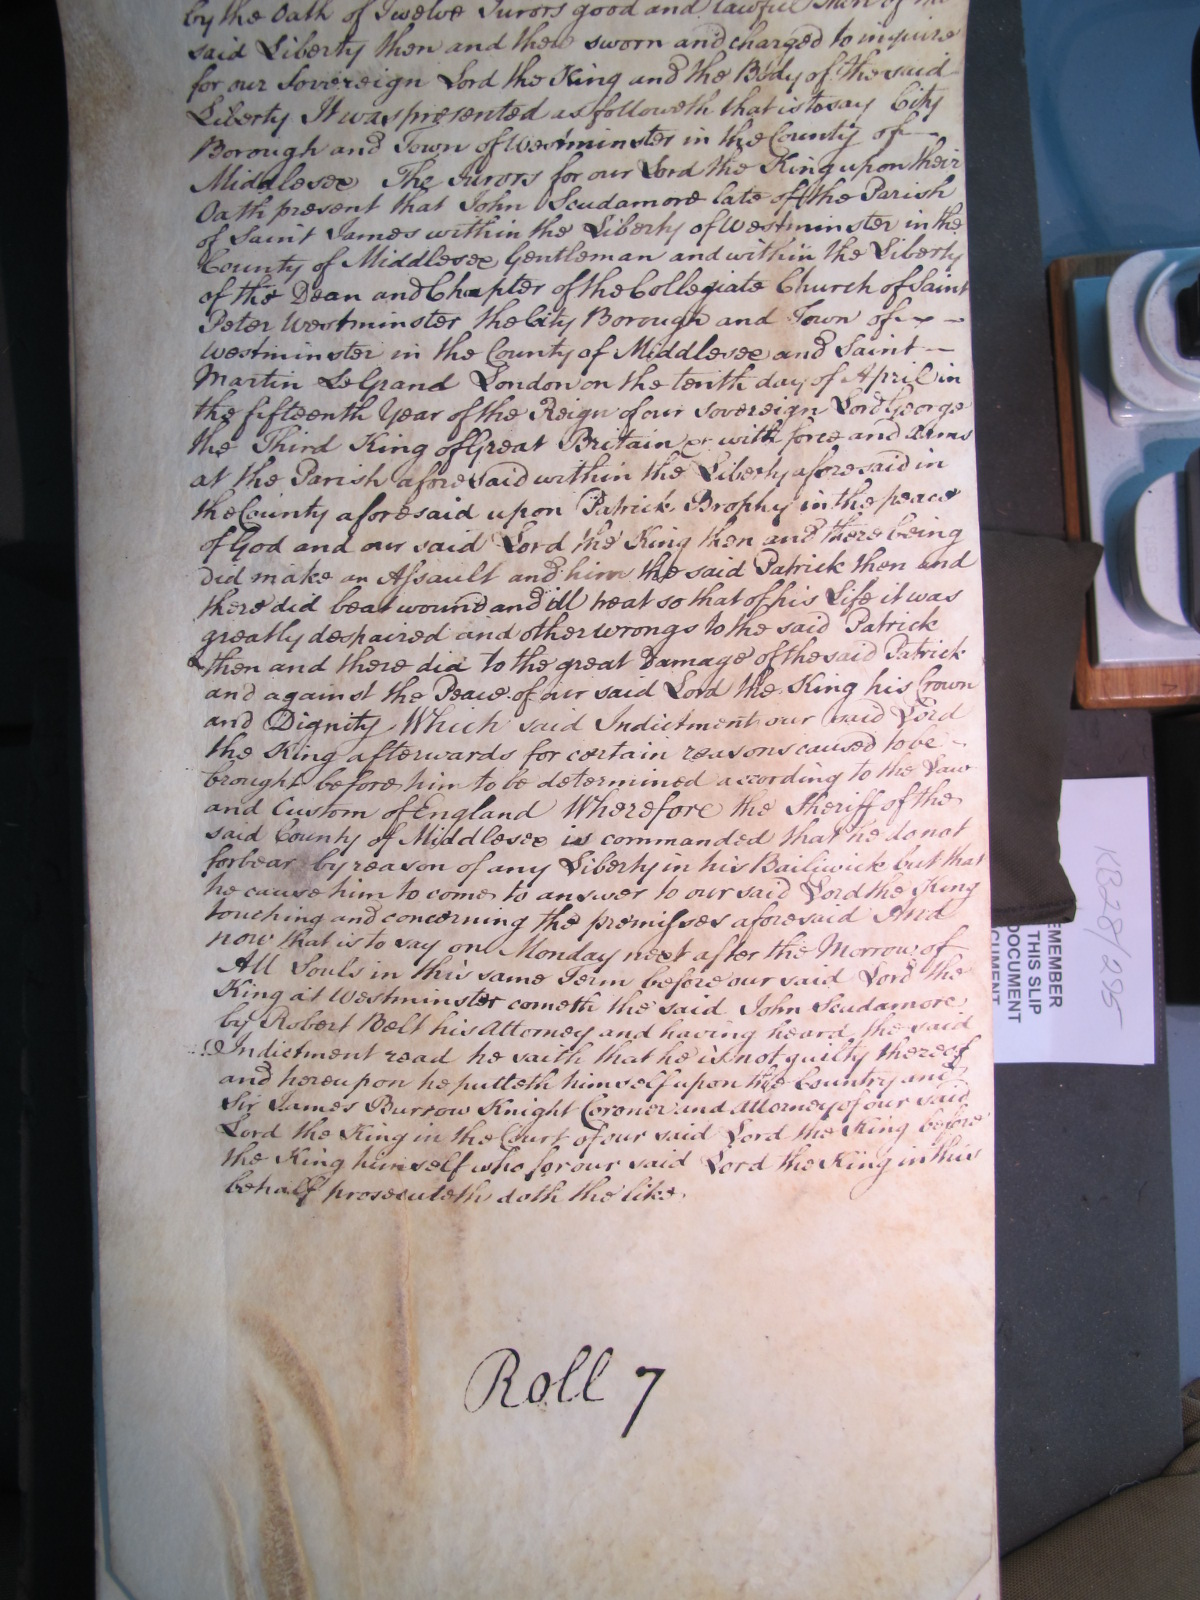 by the Oath of Twelve Jurors good and lawful Men of the
said Liberty then and there sworn and charged to inquire
for our Sovereign Lord the King and the Body of the said
Liberty It was presented as followeth that is to say City
Borough and Town of Westminster in the County of
Middlesex The Jurors for our Lord the King upon their
Oath present that John Scudamore late of the Parish
of Saint James within the Liberty of Westminster in the
County of Middlesex Gentleman and within the Liberty
of the Dean and Chapter of the Collegiate Church of Saint
Peter Westminster the City Borough and Town of
Westminster in the County of Middlesex and Saint
Martin Le Grand London on the tenth day of April in
the fifteenth Year of the Reign of our sovereign Lord George
the Third King of Great Britain &c with force and Arms
at the Parish aforesaid within the Liberty aforesaid in
the County aforesaid upon Patrick Brophy in the peace
of God and our said Lord the King then and there being
did make an Assault and him the said Patrick then and
there did beat wound and ill treat so that of his Life it was
greatly despaired and other wrongs to the said Patrick
then and there did to the great Damage of the said Patrick
and against the Peace of our said Lord the King his Crown
and Dignity Which said Indictment our said Lord
the King afterwards for certain reasons caused to be
brought before him to be determined according to the Law
and Custom of England Wherefore the Sheriff of the
said County of Middlesex is commanded that he do not
forbear by reason of any Liberty in his Bailiwick but that
he cause him to come to answer to our said Lord the King
touching and concerning the premisses aforesaid And
now that is to say on Monday next after the Morrow of
All Souls in this same Term before our said Lord the
King at Westminster cometh the said John Scudamore
by Robert Belt his Attorney and having heard the said
Indictment read he saith that he is not guilty thereof
and hereupon he putteth himself upon the Country and
Sir James Burrow Knight Coroner and Attorney of our said
Lord the King in the Court of our said Lord the King before
the King himself who for our said Lord the King in this
behalf prosecuteth doth the like.
Roll 7
KB28/295
EMEMBER
THIS SLIP
DOCUMENT
CUMENT